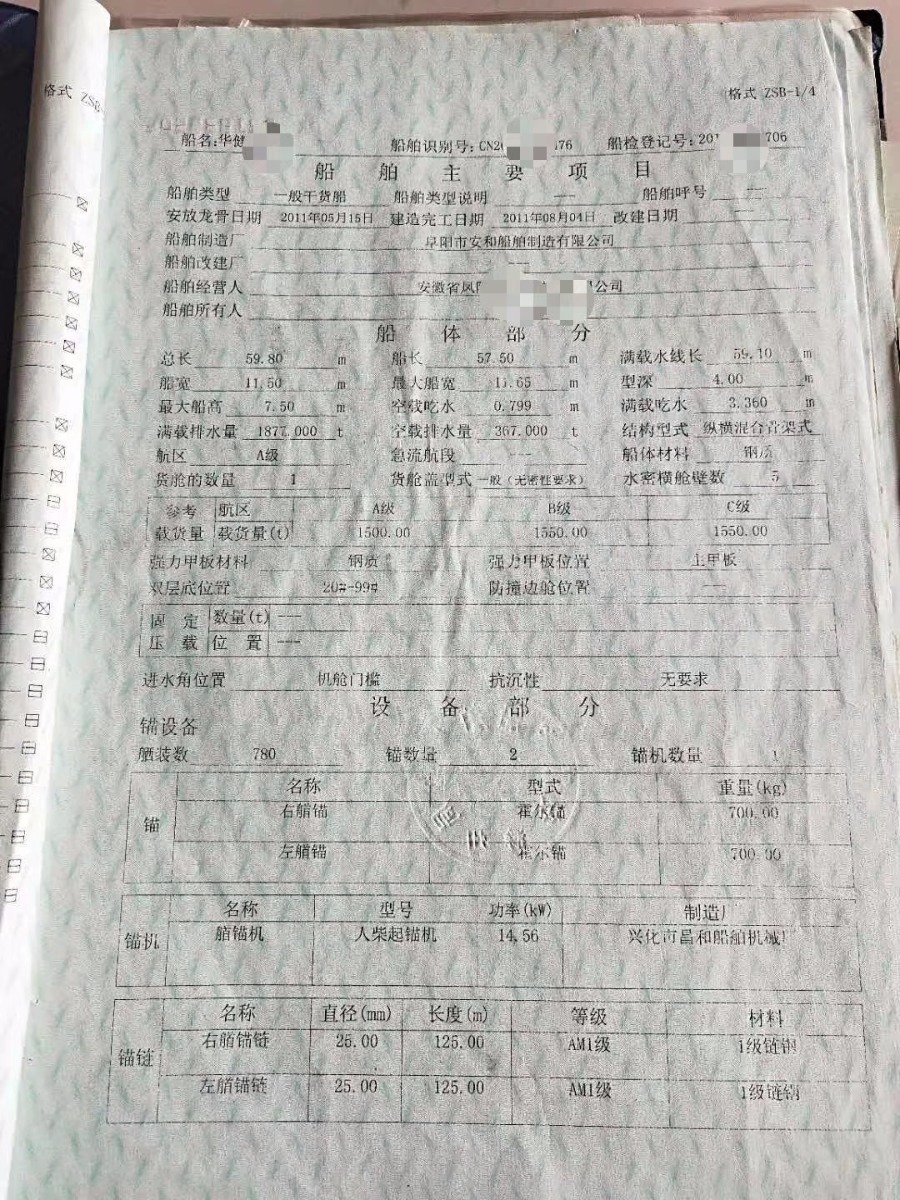 格式 ZSB-
格式 ZSB-1/4
船名:华健 船舶识别号:CN20 176 船检登记号:201 706
船舶主要项目
船舶类型 一般干货船 船舶类型说明 --- 船舶呼号 ---
安放龙骨日期 2011年05月15日 建造完工日期 2011年08月04日 改建日期 ---
船舶制造厂 阜阳市安和船舶制造有限公司
船舶改建厂 ---
船舶经营人 安徽省凤 公司
船舶所有人
船体部分
总长 59.80 m 船长 57.50 m 满载水线长 59.10 m
船宽 11.50 m 最大船宽 11.65 m 型深 4.00 m
最大船高 7.50 m 空载吃水 0.799 m 满载吃水 3.360 m
满载排水量 1877.000 t 空载排水量 367.000 t 结构型式 纵横混合骨架式
航区 A级 急流航段 --- 船体材料 钢质
货舱的数量 1 货舱盖型式 一般(无密性要求) 水密横舱壁数 5
参考 航区 A级 B级 C级
载货量 载货量(t) 1500.00 1550.00 1550.00
强力甲板材料 钢质 强力甲板位置 主甲板
双层底位置 20#-99# 防撞边舱位置 ---
固定 数量(t) ---
压载 位置 ---
进水角位置 机舱门槛 抗沉性 无要求
设备部分
锚设备
舾装数 780 锚数量 2 锚机数量 1
名称 型式 重量(kg)
锚 右艏锚 霍尔锚 700.00
左艏锚 霍尔锚 700.00
名称 型号 功率(kW) 制造厂
锚机 艏锚机 人柴起锚机 14.56 兴化市昌和船舶机械厂
名称 直径(mm) 长度(m) 等级 材料
锚链 右艏锚链 25.00 125.00 AM1级 1级链钢
左艏锚链 25.00 125.00 AM1级 1级链钢